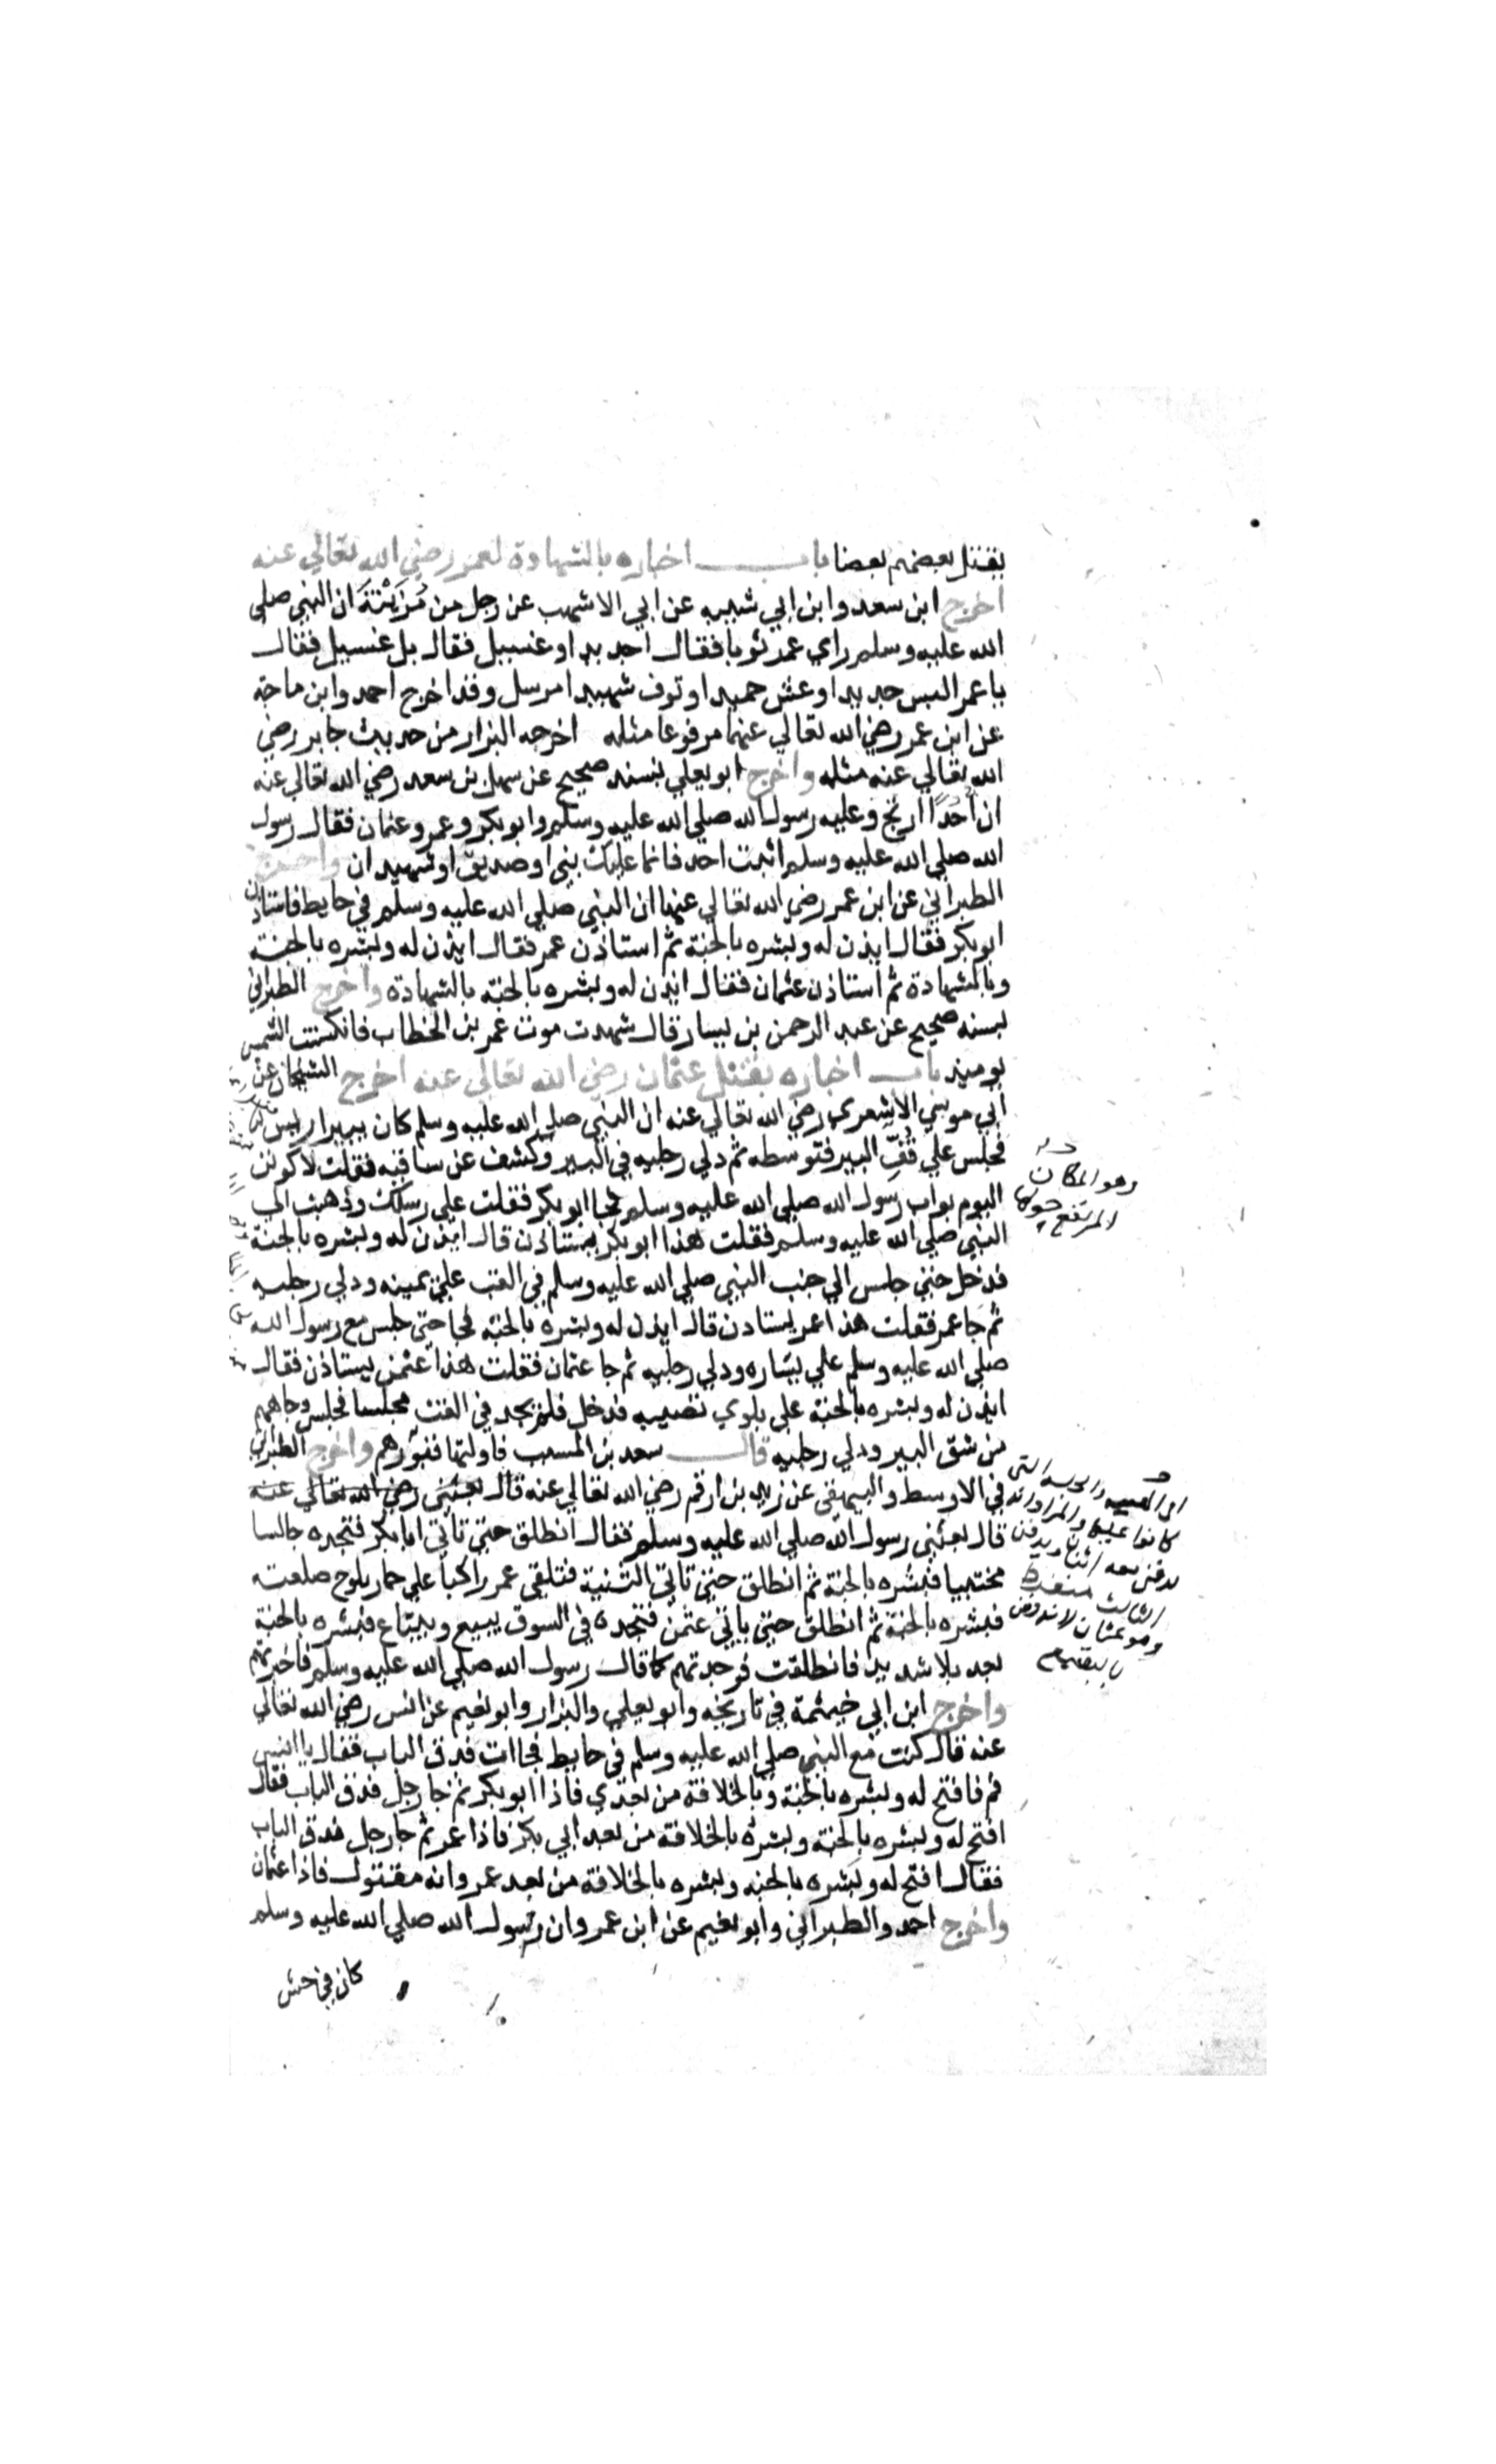 يقتل بعضهم بعضا باب اخباره بالشهادة لعمر رضي الله تعالي عنه
اخرج ابن سعد وابن ابي شيبه عن ابي الاشهب عن رجل من مُزَيْنَةَ ان النبي صلي
الله عليه وسلم راي عمر ثوبا فقال اجديدا وغسيل فقال بل غسيل فقال
يا عمر البس جديدا وعش حميدا وتوف شهيدا مرسل وقد اخرج احمد وابن ماجة
عن ابن عمر رضي الله تعالي عنهما مرفوعا مثله اخرجه البزار من حديث جابر رضي
الله تعالي عنه مثله واخرج ابو يعلي بسند صحيح عن سهل بن سعد رضي الله تعالي عنه
ان اُحُدًا ارتج وعليه رسول الله صلي الله عليه وسلم وابو بكر وعمر وعثمان فقال رسول
الله صلي الله عليه وسلم اثبت احد فانما عليك نبي او صديق او شهيدان واخرج
الطبراني عن ابن عمر رضي الله تعالي عنهما ان النبي صلي الله عليه وسلم في حايط فاستاذن
ابو بكر فقال ايذن له وبشره بالجنة ثم استاذن عمر فقال ايذن له وبشره بالجنة
وبالشهادة ثم استاذن عثمان فقال ايذن له وبشره بالجنة بالشهادة واخرج الطبراني
بسند صحيح عن عبد الرحمن بن يسار قال شهدت موت عمر بن الخطاب فانكسفت الشمس
يوميذ باب اخباره بقتل عثمان رضي الله تعالي عنه اخرج الشيخان عن
ابي موسي الاشعري رضي الله تعالي عنه ان النبي صلي الله عليه وسلم كان ببير اريس
فجلس علي قُفِّ البير فتوسطه ثم دلي رجليه في البير وكشف عن ساقيه فقلت لاكونن
وهو المكان
المرتفع حولها
اليوم بواب رسول الله صلي الله عليه وسلم فجا ابو بكر فقلت علي رسلك وذهبت الي
النبي صلي الله عليه وسلم فقلت هذا ابو بكر يستاذن قال ايذن له وبشره بالجنة
فدخل حتي جلس الي جنب النبي صلي الله عليه وسلم في القف علي يمينه ودلي رجليه
ثم جا عمر فقلت هذا عمر يستاذن قال ايذن له وبشره بالجنة فجا حتي جلس مع رسول الله
صلي الله عليه وسلم علي يساره ودلي رجليه ثم جا عثمان فقلت هذا عثمن يستاذن فقال
ايذن له وبشره بالجنة علي بلوي تصيبه فدخل فلم يجد في القف مجلسا فجلس وجاههم
من شق البير ودلي رجليه قال سعد بن المسيب فاولتها قبورهم واخرج الطبراني
في الاوسط والبيهقي عن زيد بن ارقم رضي الله تعالي عنه قال بعثني رضي الله تعالي عنه
قال بعثني رسول الله صلي الله عليه وسلم فقال انطلق حتي تاتي ابا بكر فتجده جالسا
محتبيا فبشره بالجنة ثم انطلق حتي تاتي الثنية فتلقي عمر راكبا علي حمار يلوح صلعته
فبشره بالجنة ثم انطلق حتي ياتي عثمن فتجده في السوق يبيع ويبتاع فبشره بالجنة
بعد بلا شديد فانطلقت فوجدتهم كما قال رسول الله صلي الله عليه وسلم فاخبرتهم
واخرج ابن ابي خيثمة في تاريخه وابو يعلي والبزار وابو نعيم عن انس رضي الله تعالي
عنه قال كنت مع النبي صلي الله عليه وسلم في حايط فجاات فدق الباب فقال يا انس
قم فافتح له وبشره بالجنة وبالخلافة من بعدي فاذا ابو بكر ثم جا رجل فدق الباب فقال
افتح له وبشره بالجنة وبشره بالخلافة من بعد ابي بكر فاذا عمر ثم جا رجل فدق الباب
فقال افتح له وبشره بالجنه وبشره بالخلافة من بعد عمر وانه مقتول فاذا عثمان
واخرج احمد والطبراني وابو نعيم عن ابن عمر وان رسول الله صلي الله عليه وسلم
كان في حش